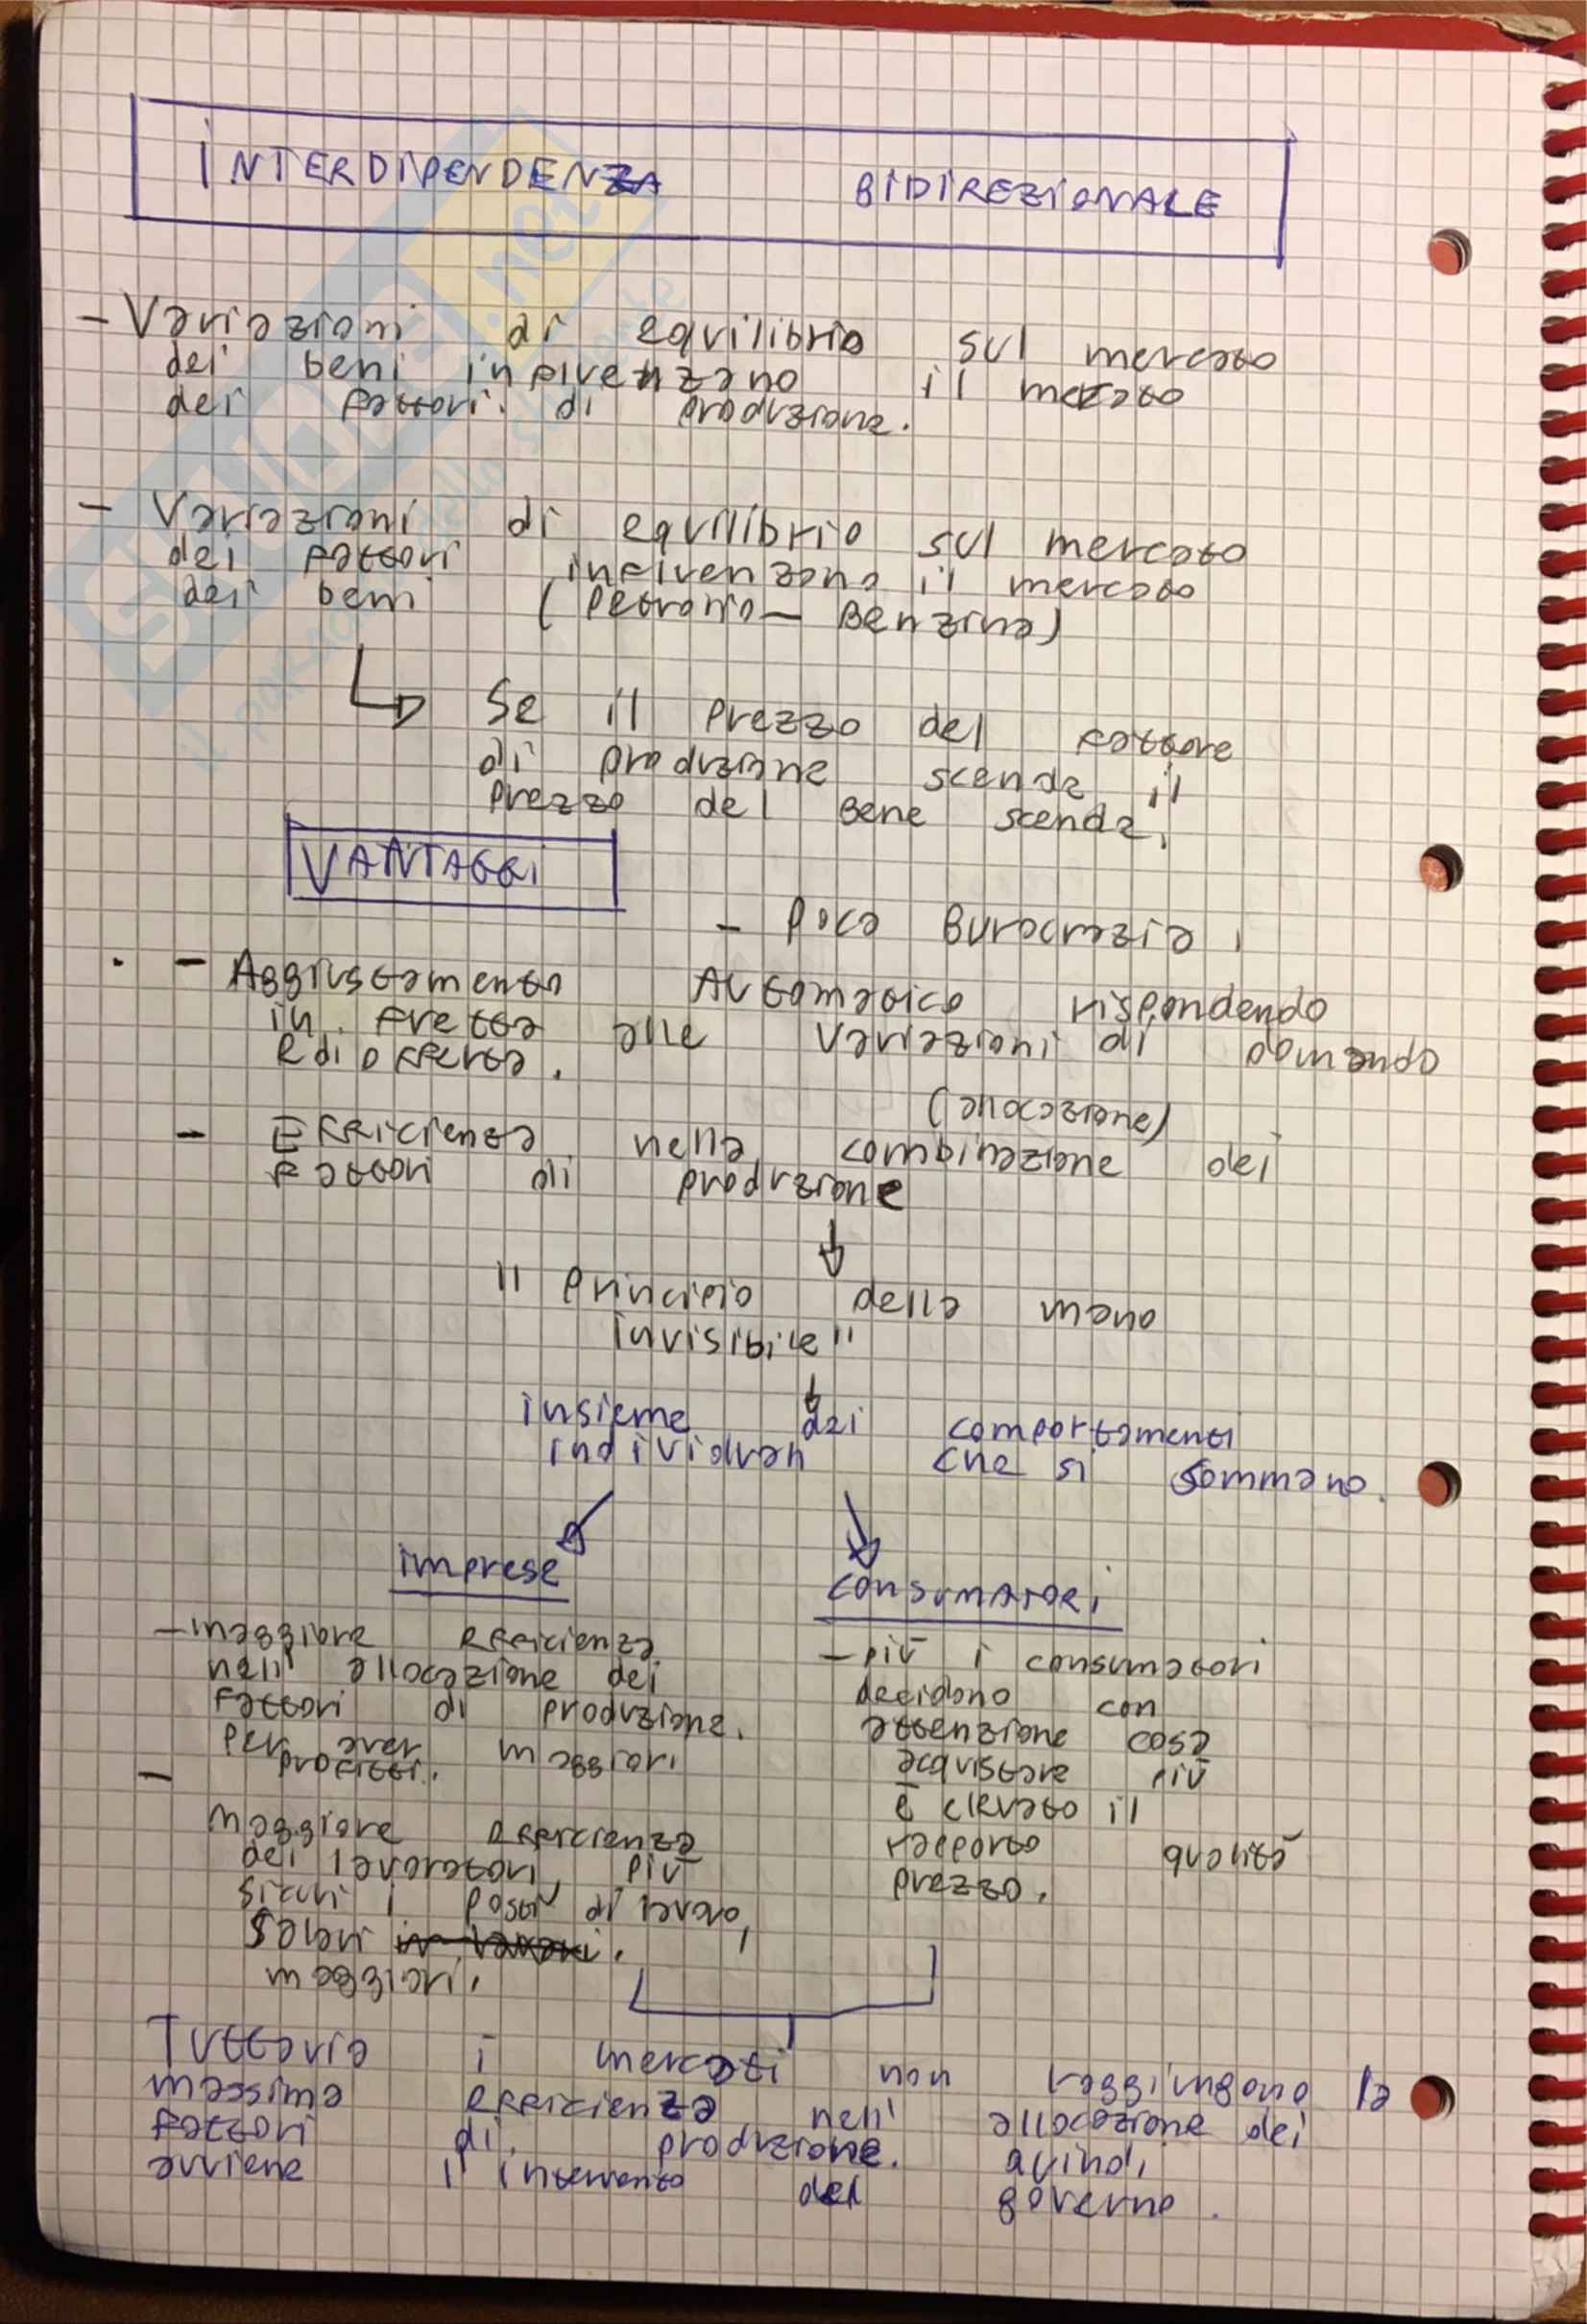 INTERDIPENDENZA BIDIREZIONALE
- Variazioni di equilibrio sul mercato
dei beni influenzano il mercato
dei fattori di produzione.
- Variazioni di equilibrio sul mercato
dei fattori influenzano il mercato
dei beni (Petrolio - Benzina)
Se il prezzo del fattore
di produzione scende il
prezzo del Bene scende.
VANTAGGI
- Poca Burocrazia,
- Aggiustamento Automatico rispondendo
in fretta alle variazioni di domanda
e di offerta.
(allocazione)
- Efficienza nella combinazione dei
fattori di produzione
"Principio della mano
invisibile"
insieme dei comportamenti
individuali che si sommano.
imprese
- maggiore efficienza
nell' allocazione dei
fattori di produzione.
Per aver maggiori
profitti.
-
maggiore efficienza
dei lavoratori, più
sicuri i posti di lavoro,
Salari
maggiori.
CONSUMATORI
- più i consumatori
decidono con
attenzione cosa
acquistare più
è elevato il
rapporto qualità
prezzo.
Tuttavia i mercati non raggiungono la
massima efficienza nell' allocazione dei
fattori di produzione. Quindi
avviene l'intervento del governo.